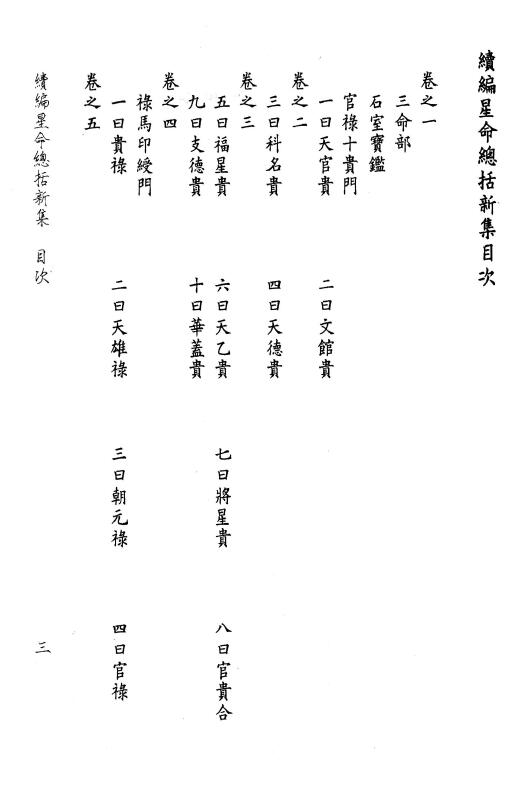 續編星命總括新集目次
卷之一
三命部
石室寶鑑
官祿十貴門
一曰天官貴 二曰文館貴
卷之二
三曰科名貴 四曰天德貴
卷之三
五曰福星貴 六曰天乙貴 七曰將星貴 八曰官貴合
九曰支德貴 十曰華蓋貴
卷之四
祿馬印綬門
一曰貴祿 二曰天雄祿 三曰朝元祿 四曰官祿
卷之五
續編星命總括新集 目次 三